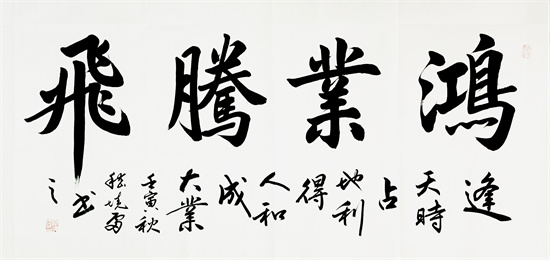 鴻業騰飛
逢天時占地利得人和成大業
壬寅秋
书之